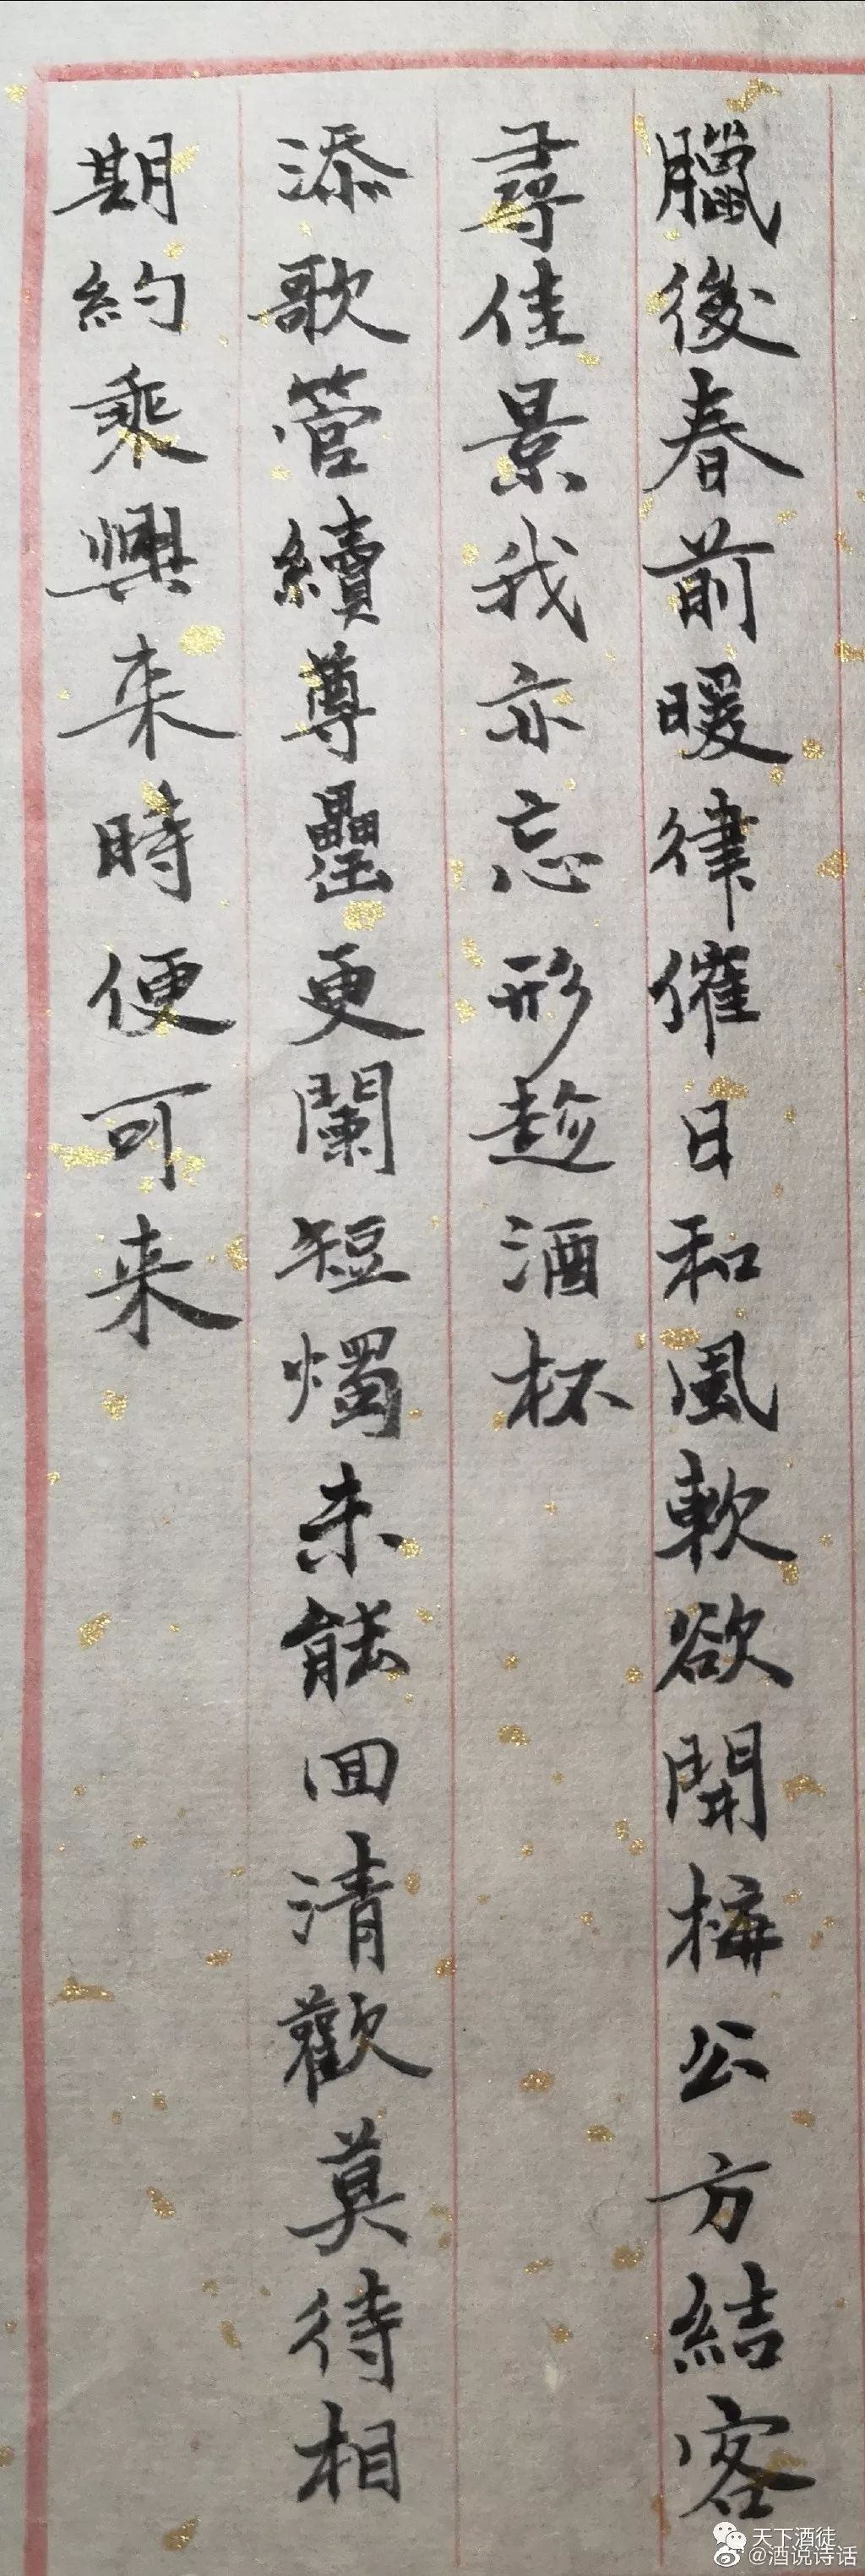 臘後春前暖律催日和風軟欲開梅公方結客
尋佳景我亦忘形趁酒杯
添歌管續尊罍更闌短燭未能回清歡莫待相
期約乘興来時便可来
天下酒徒
@酒说诗话